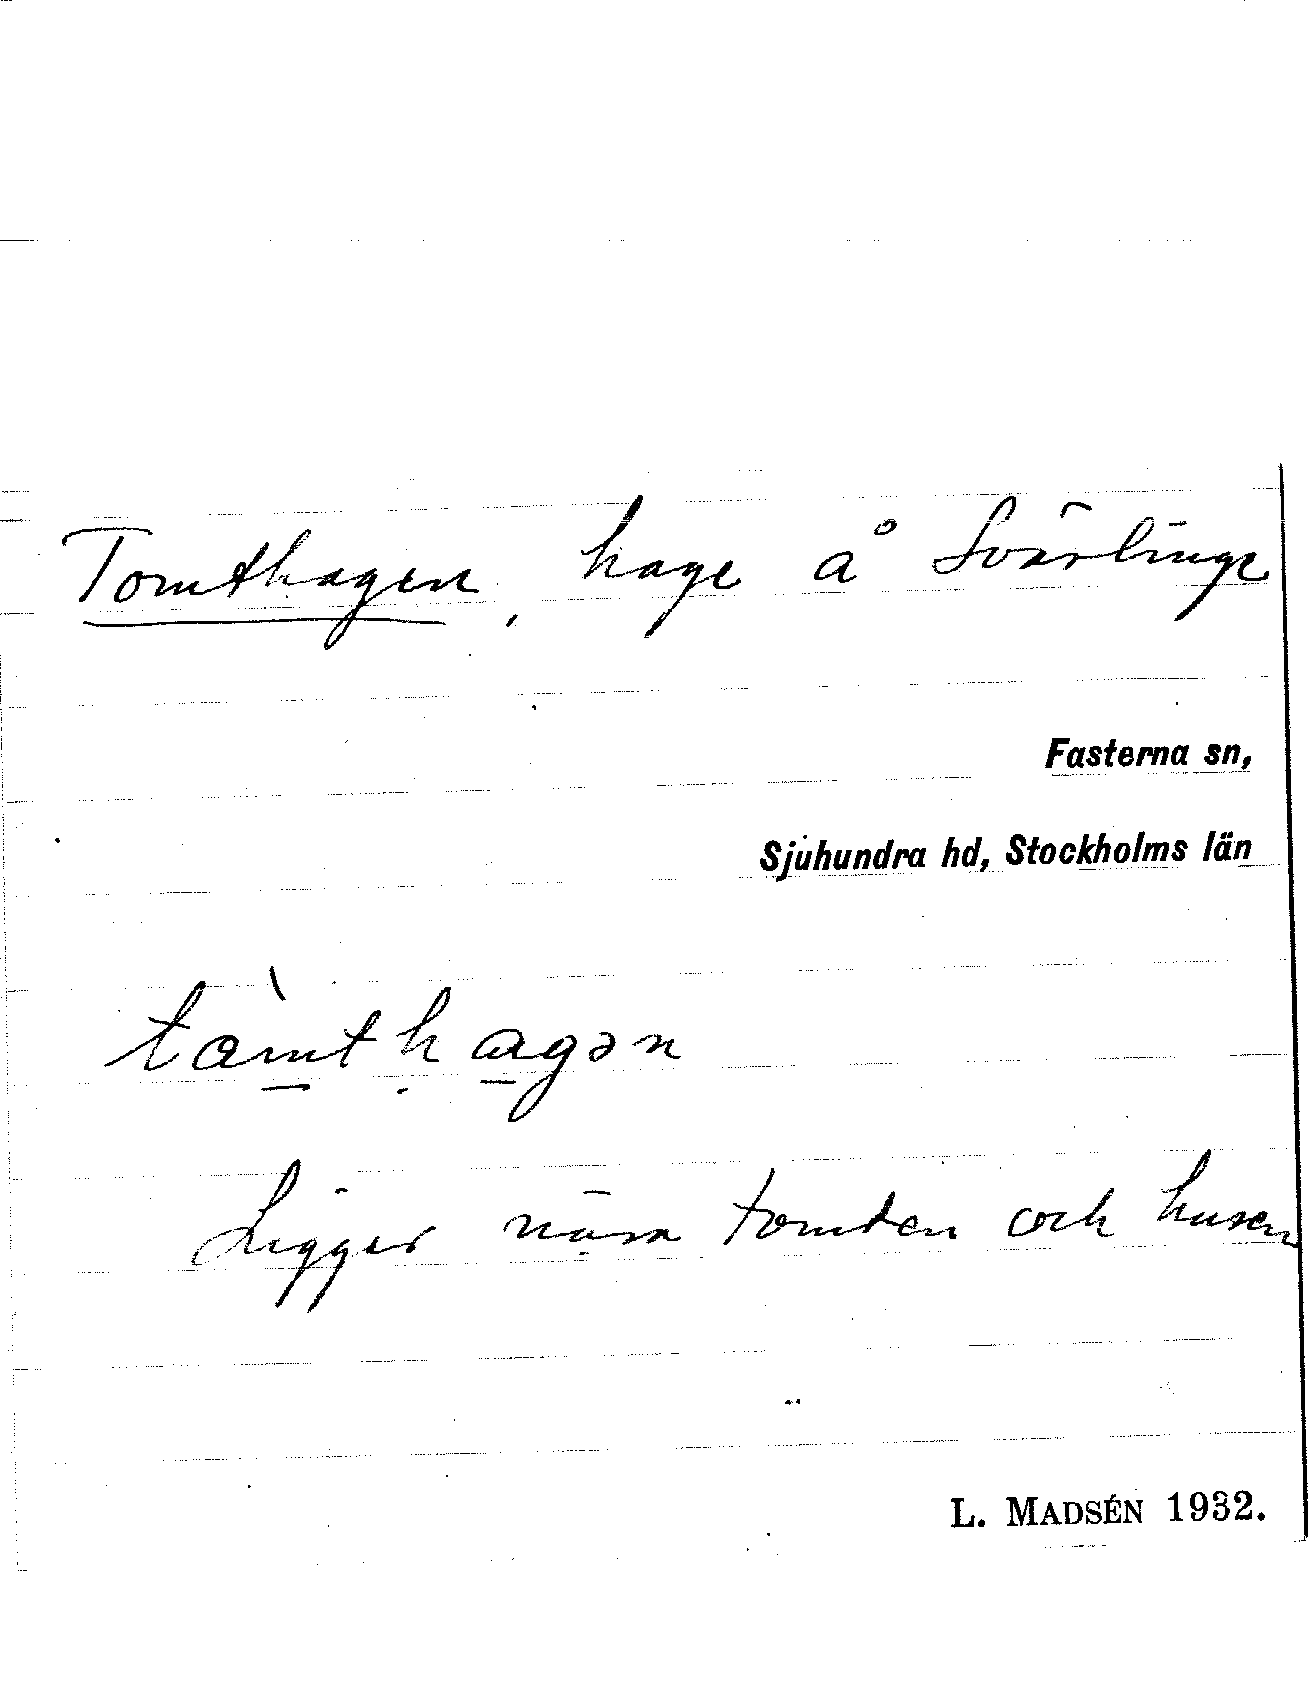 Tomthagen, hage å Svärlinge
Fasterna sn,
Sjuhundra hd, Stockholms län
tàmthagən
Ligger nära tomten och husen
L. MADSÉN 1932.